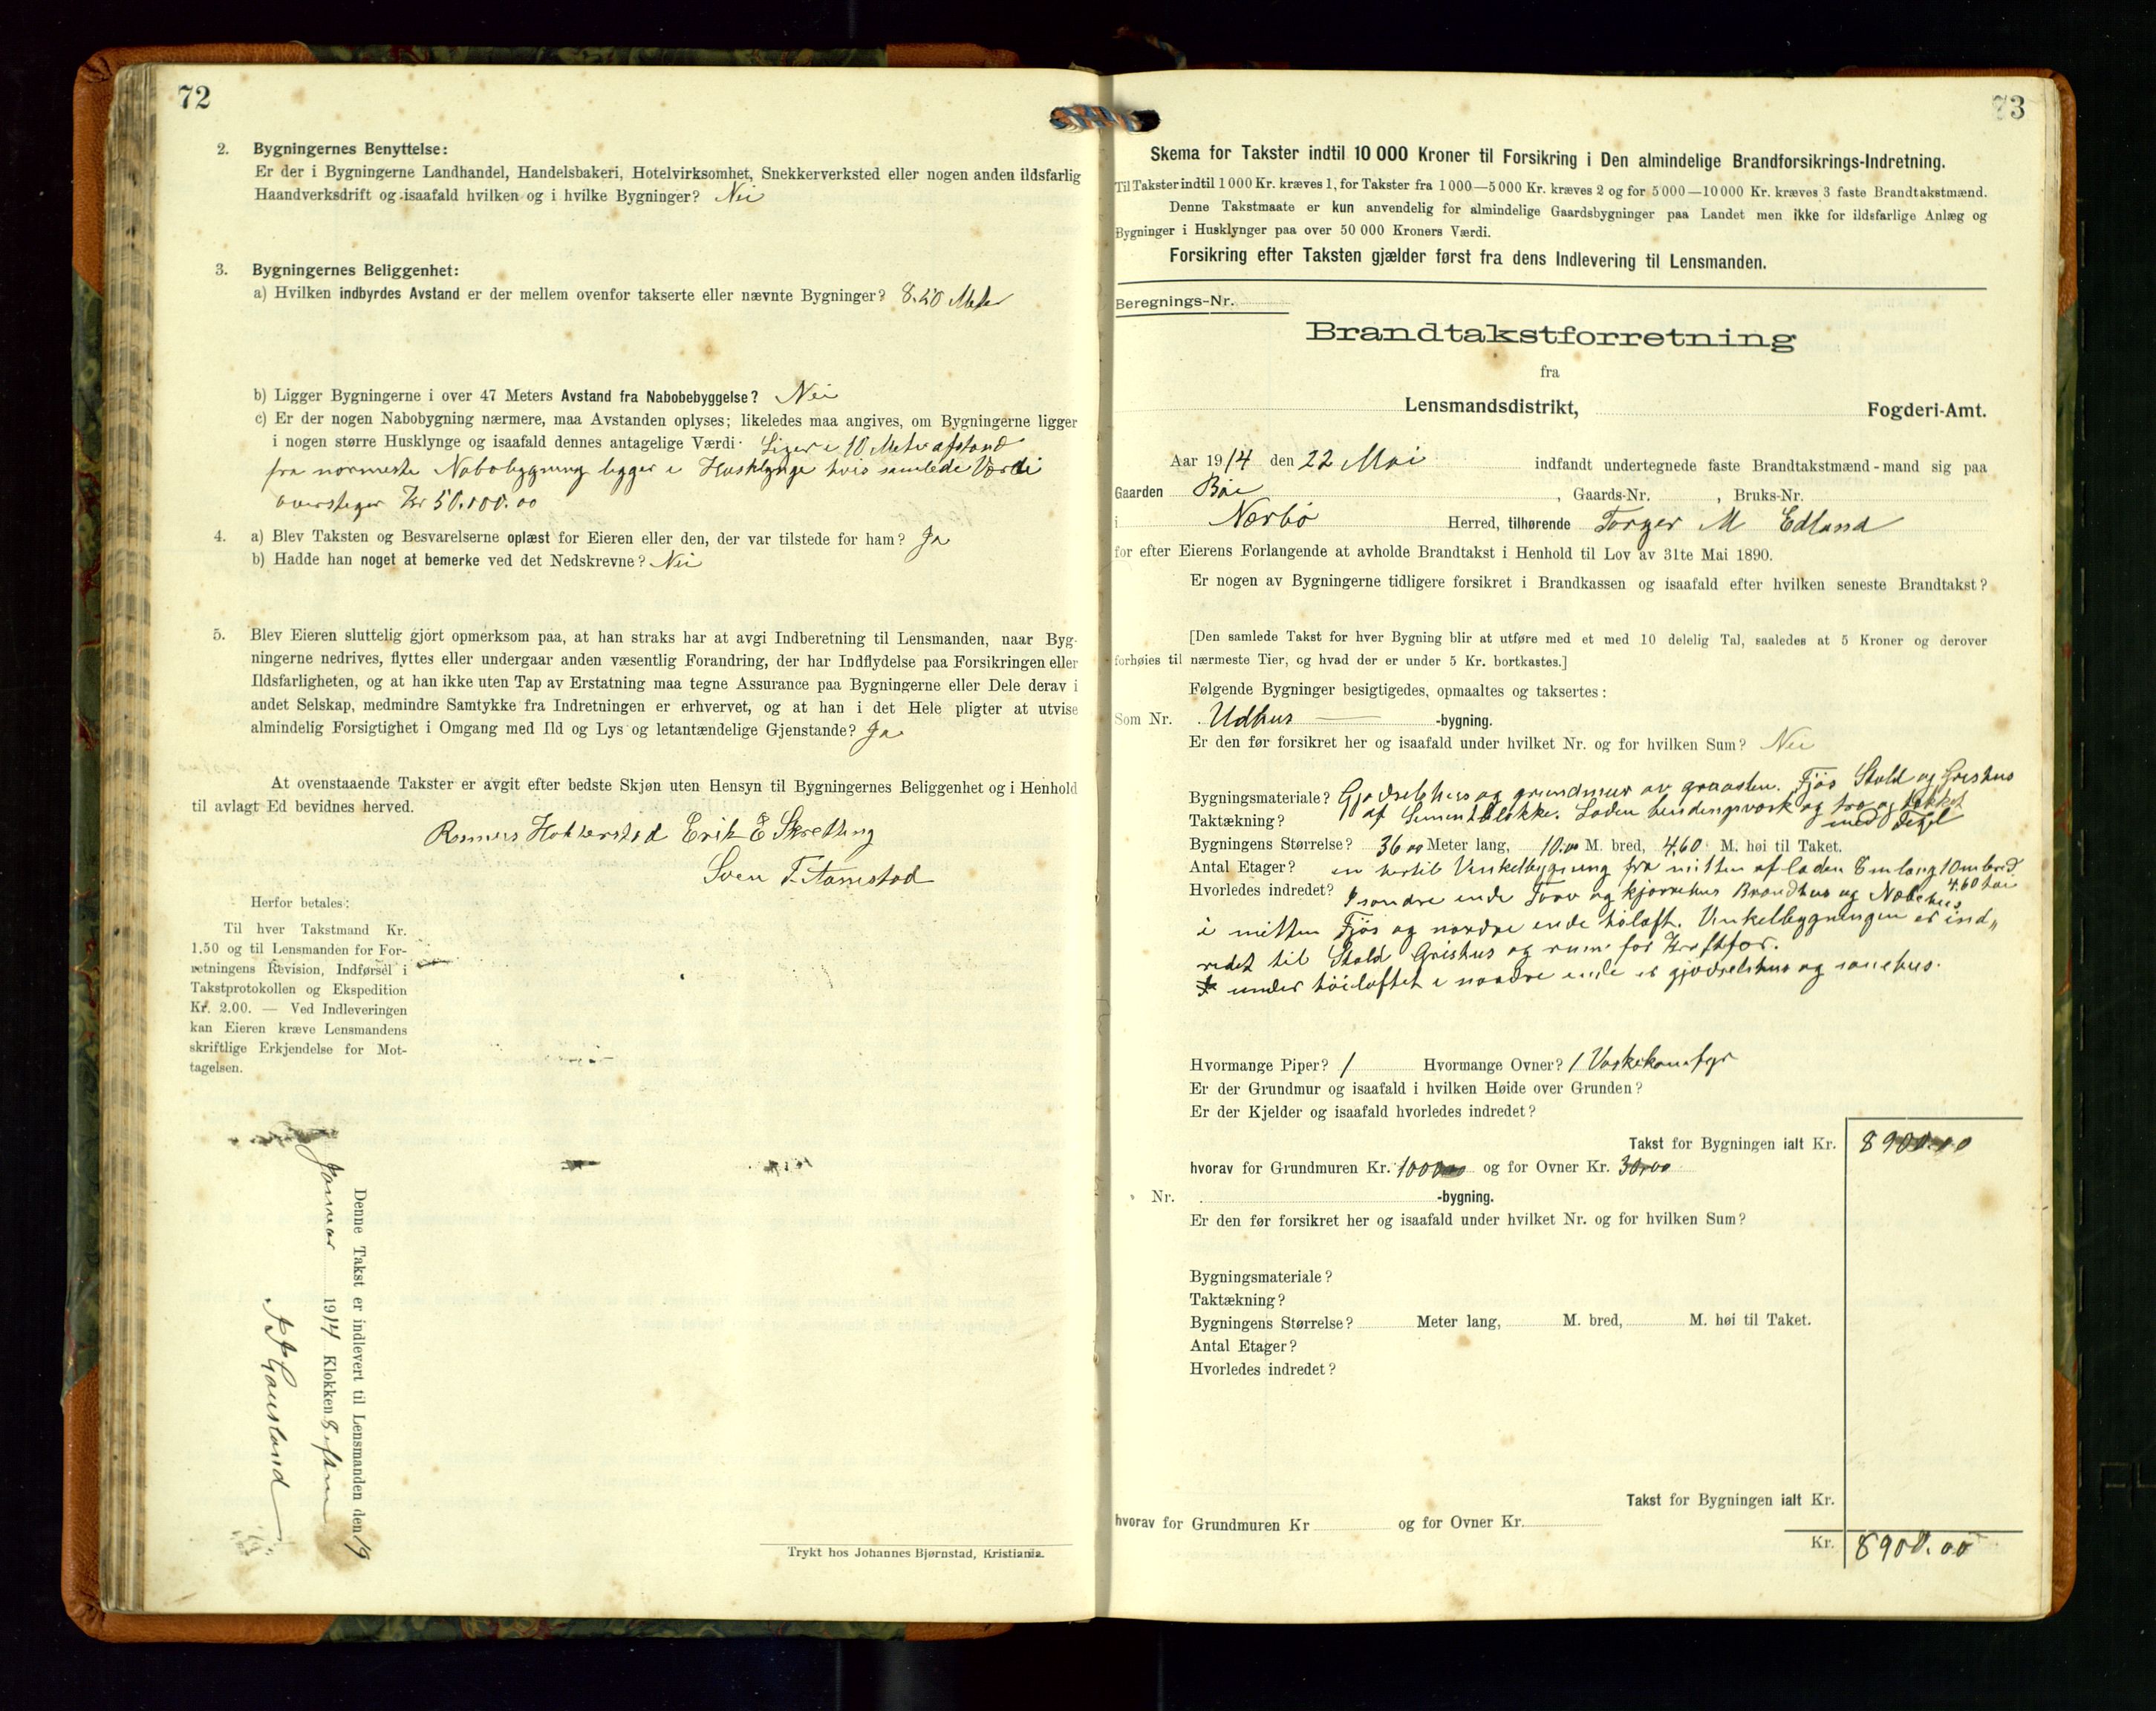 72
2. Bygningernes Benyttelse:
Er der i Bygningerne Landhandel, Handelsbakeri, Hotelvirksomhet, Snekkerverksted eller nogen anden ildsfarlig
Haandverksdrift og isaafald hvilken og i hvilke Bygninger? Nei
3. Bygningernes Beliggenhet:
a) Hvilken indbyrdes Avstand er der mellem ovenfor takserte eller nævnte Bygninger? 8.50 Meter
b) Ligger Bygningerne i over 47 Meters Avstand fra Nabobebyggelse? Nei
c) Er der nogen Nabobygning nærmere, maa Avstanden oplyses; likeledes maa angives, om Bygningerne ligger
i nogen større Husklynge og isaafald dennes antagelige Værdi. Liger i 10 Meter afstand
fra normeste Nabobygning ligger i Husklynge hvis samlede Værdi
oversteger Kr 50.100.00
4. a) Blev Taksten og Besvarelserne oplæst for Eieren eller den, der var tilstede for ham? Ja
b) Hadde han noget at bemerke ved det Nedskrevne? Nei
5. Blev Eieren sluttelig gjort opmerksom paa, at han straks har at avgi Indberetning til Lensmanden, naar Byg-
ningerne nedrives, flyttes eller undergaar anden væsentlig Forandring, der har Indflydelse paa Forsikringen eller
Ildsfarligheten, og at han ikke uten Tap av Erstatning maa tegne Assurance paa Bygningerne eller Dele derav i
andet Selskap, medmindre Samtykke fra Indretningen er erhvervet, og at han i det Hele pligter at utvise
almindelig Forsigtighet i Omgang med Ild og Lys og letantændelige Gjenstande? Ja
At ovenstaaende Takster er avgit efter bedste Skjøn uten Hensyn til Bygningernes Beliggenhet og i Henhold
til avlagt Ed bevidnes herved.
Erik E Skretting
Sven T.
Herfor betales:
Til hver Takstmand Kr.
1.50 og til Lensmanden for For-
retningens Revision, Indførsel i
Takstprotokollen og Ekspedition
Kr. 2.00. — Ved Indleveringen
kan Eieren kræve Lensmandens
skriftlige Erkjendelse for Mot-
tagelsen.
Denne Takst er indlevert til Lensmanden den 19
Januar 1914 Klokken 8 eftm
Gausland
Trykt hos Johannes Bjørnstad, Kristiania.
73
Skema for Takster indtil 10 000 Kroner til Forsikring i Den almindelige Brandforsikrings-Indretning.
Til Takster indtil 1 000 Kr. kræves 1, for Takster fra 1 000—5 000 Kr. kræves 2 og for 5 000—10 000 Kr. kræves 3 faste Brandtakstmænd.
Denne Takstmaate er kun anvendelig for almindelige Gaardsbygninger paa Landet men ikke for ildsfarlige Anlæg og
Bygninger i Husklynger paa over 50 000 Kroners Værdi.
Forsikring efter Taksten gjælder først fra dens Indlevering til Lensmanden.
Beregnings-Nr.
Brandtakstforretning
fra
Lensmandsdistrikt, Fogderi-Amt.
Aar 1914 den 22 Mai indfandt undertegnede faste Brandtakstmænd-mand sig paa
Gaarden Bøe, Gaards-Nr. , Bruks-Nr.
i Nærbø Herred, tilhørende Torger M Edland
for efter Eierens Forlangende at avholde Brandtakst i Henhold til Lov av 31te Mai 1890.
Er nogen av Bygningerne tidligere forsikret i Brandkassen og isaafald efter hvilken seneste Brandtakst?
[Den samlede Takst for hver Bygning blir at utføre med et med 10 delelig Tal, saaledes at 5 Kroner og derover
forhøies til nærmeste Tier, og hvad der er under 5 Kr. bortkastes.]
Følgende Bygninger besigtigedes, opmaaltes og taksertes:
Som Nr. Udhus -bygning.
Er den før forsikret her og isaafald under hvilket Nr. og for hvilken Sum? Nei
Bygningsmateriale? Gjødselshus og grundmur av graasten. Fjøs Stald og Grishus
Taktækning? af Sementblokke. Laden bindingsværk og tro og tækket
med Tegl
Bygningens Størrelse? 36 00 Meter lang, 10.00 M. bred, 4.60 M. høi til Taket.
Antal Etager? en vertil Vinkelbygning fra mitten af laden 8 m lang 10 m bred
4.60 høi
Hvorledes indredet? I søndre ende Torv og kjørrehus Brandhus og
i mitten Fjøs og nordre ende høloft. Vinkelbygningen er ind„
redet til Stald Grishus og rum for Kraftfor.
under høiloftet i nordre ende er gjødselshus og
Hvormange Piper? 1 Hvormange Ovner? 1 Vaskekomfyr
Er der Grundmur og isaafald i hvilken Høide over Grunden?
Er der Kjelder og isaafald hvorledes indredet?
Takst for Bygningen ialt Kr. 8900.00
hvorav for Grundmuren Kr. 1000.00 og for Ovner Kr. 30.00
Nr. -bygning.
Er den før forsikret her og isaafald under hvilket Nr. og for hvilken Sum?
Bygningsmateriale?
Taktækning?
Bygningens Størrelse? Meter lang, M. bred, M. høi til Taket.
Antal Etager?
Hvorledes indredet?
Takst for Bygningen ialt Kr.
hvorav for Grundmuren Kr og for Ovner Kr.
Kr. 8900.00